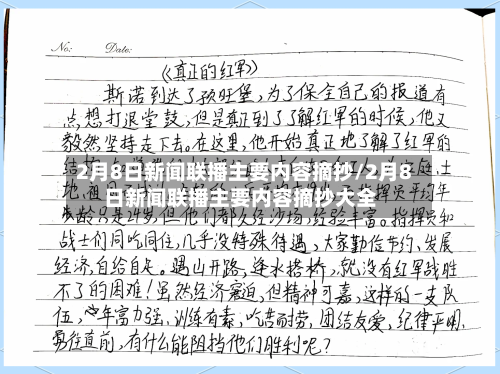 No: Date:
《真正的红军》
斯诺到达了预旺堡,为了保全自己的报道有
点想打退堂鼓,但是真正到了了解红军的时候,他又
毅然坚持走下去。在这里,他开始真正地了解了红军的
2月8日新闻联播主要内容摘抄/2月8
日新闻联播主要内容摘抄大全
龄只是24岁,但他们都久经沙场,经验丰富。指挥员和
战士们同吃同住,几乎没特殊待遇,大家勤俭节约、发展
经济,自给自足。遇山开路,逢水搭桥,就没有红军战胜
不了的困难!虽然经济窘迫,但精神可嘉,这样的一支队
伍,年富力强,训练有素,吃苦耐劳,团结友爱,纪律严明,
勇往直前,有什么能阻挡他们胜利呢?